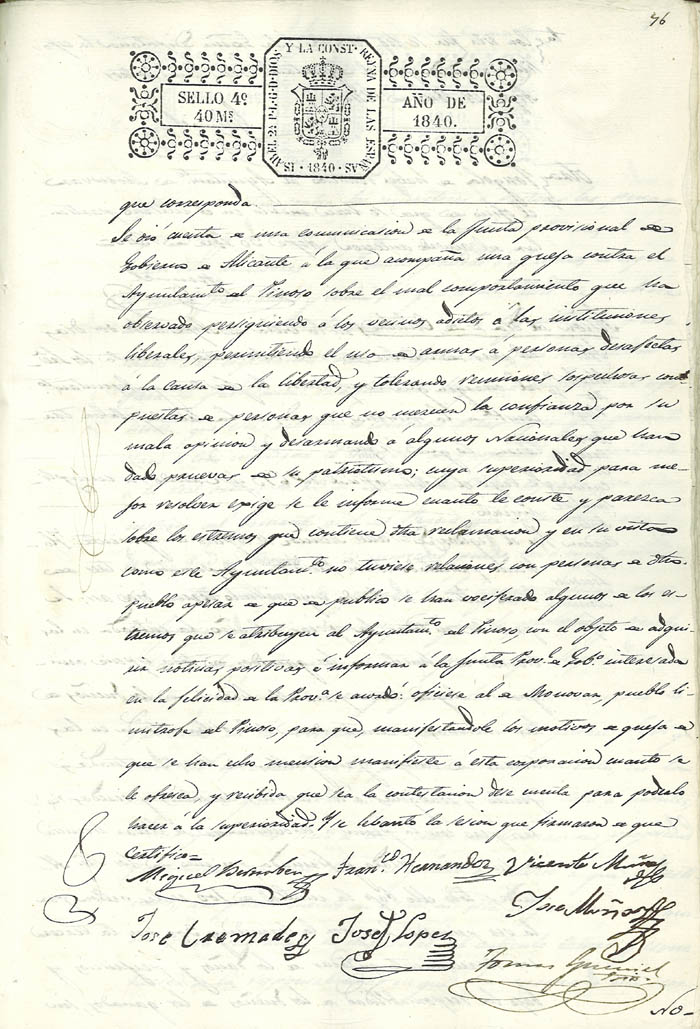 76
ISABEL 2ª P. L. G. D. DIOS Y LA CONST. REYNA DE LAS ESPAÑAS
SELLO 4º
40 Ms
AÑO DE
1840.
·1840·
que corresponda.
Se dió cuenta de una comunicacion de la Junta provisional de
Gobierno de Alicante á la que acompaña una queja contra el
Ayuntamto del Pinoso sobre el mal comportamiento que ha
observado persiguiendo á los vecinos adictos á las instituciones
liberales, permitiendo el uso de armas á personas desafectas
á la causa de la libertad, y tolerando reuniones sospechosas com-
puestas de personas que no merecen la confianza por su
mala opinion y desarmando á algunos Nacionales que han
dado pruevas de su patriotismo; cuya superioridad para me-
jor resolver exige se le informe cuanto le conste y paresca
sobre los estremos que contiene dha reclamacion y en su vista
como este Ayuntamto no tuviese relaciones con personas de dho
pueblo apesar de que de publico se han vociferado algunos de los es-
tremos que se atribuyen al Ayuntamto del Pinoso, con el objeto de adqui-
rir noticias positivas é informar á la Junta Prov.l de Gob.o interesada
en la felicidad de la Prov.a se acordó: oficiese al de Monovar, pueblo li-
mitrofe del Pinoso, para que, manifestandole los motivos de queja de
que se han echo mencion manifieste á esta corporacion cuanto se
le ofresca, y recibida que sea la contestacion dese cuenta para poderlo
hacer á la superioridad. Y se lebantó la secion que firmaron de que
Certifico=
Miguel Bernabeu Franco Hernandez Vicente Muñoz
Jose Muñoz
José Cremades Josef Lopez
Tomas
No-